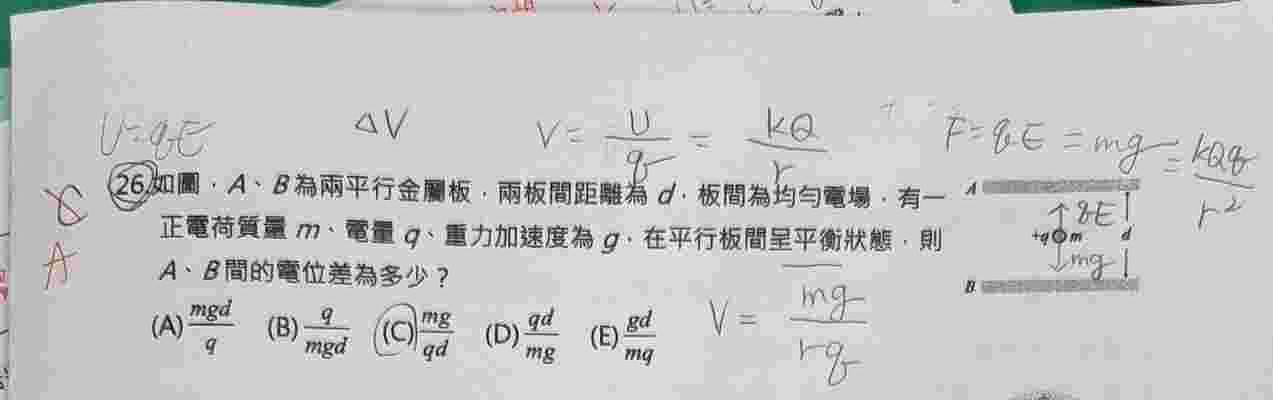 U=qE
ΔV
V = U/q = kQ/r
F = qE = mg = kQq/r²
26.如圖，A、B為兩平行金屬板，兩板間距離為 d，板間為均勻電場，有一
正電荷質量 m、電量 q、重力加速度為 g，在平行板間呈平衡狀態，則
A、B間的電位差為多少？
(A) mgd/q (B) q/mgd (C) mg/qd (D) qd/mg (E) gd/mq
V = mg/rq
A
A
qE
+q m d
mg
B